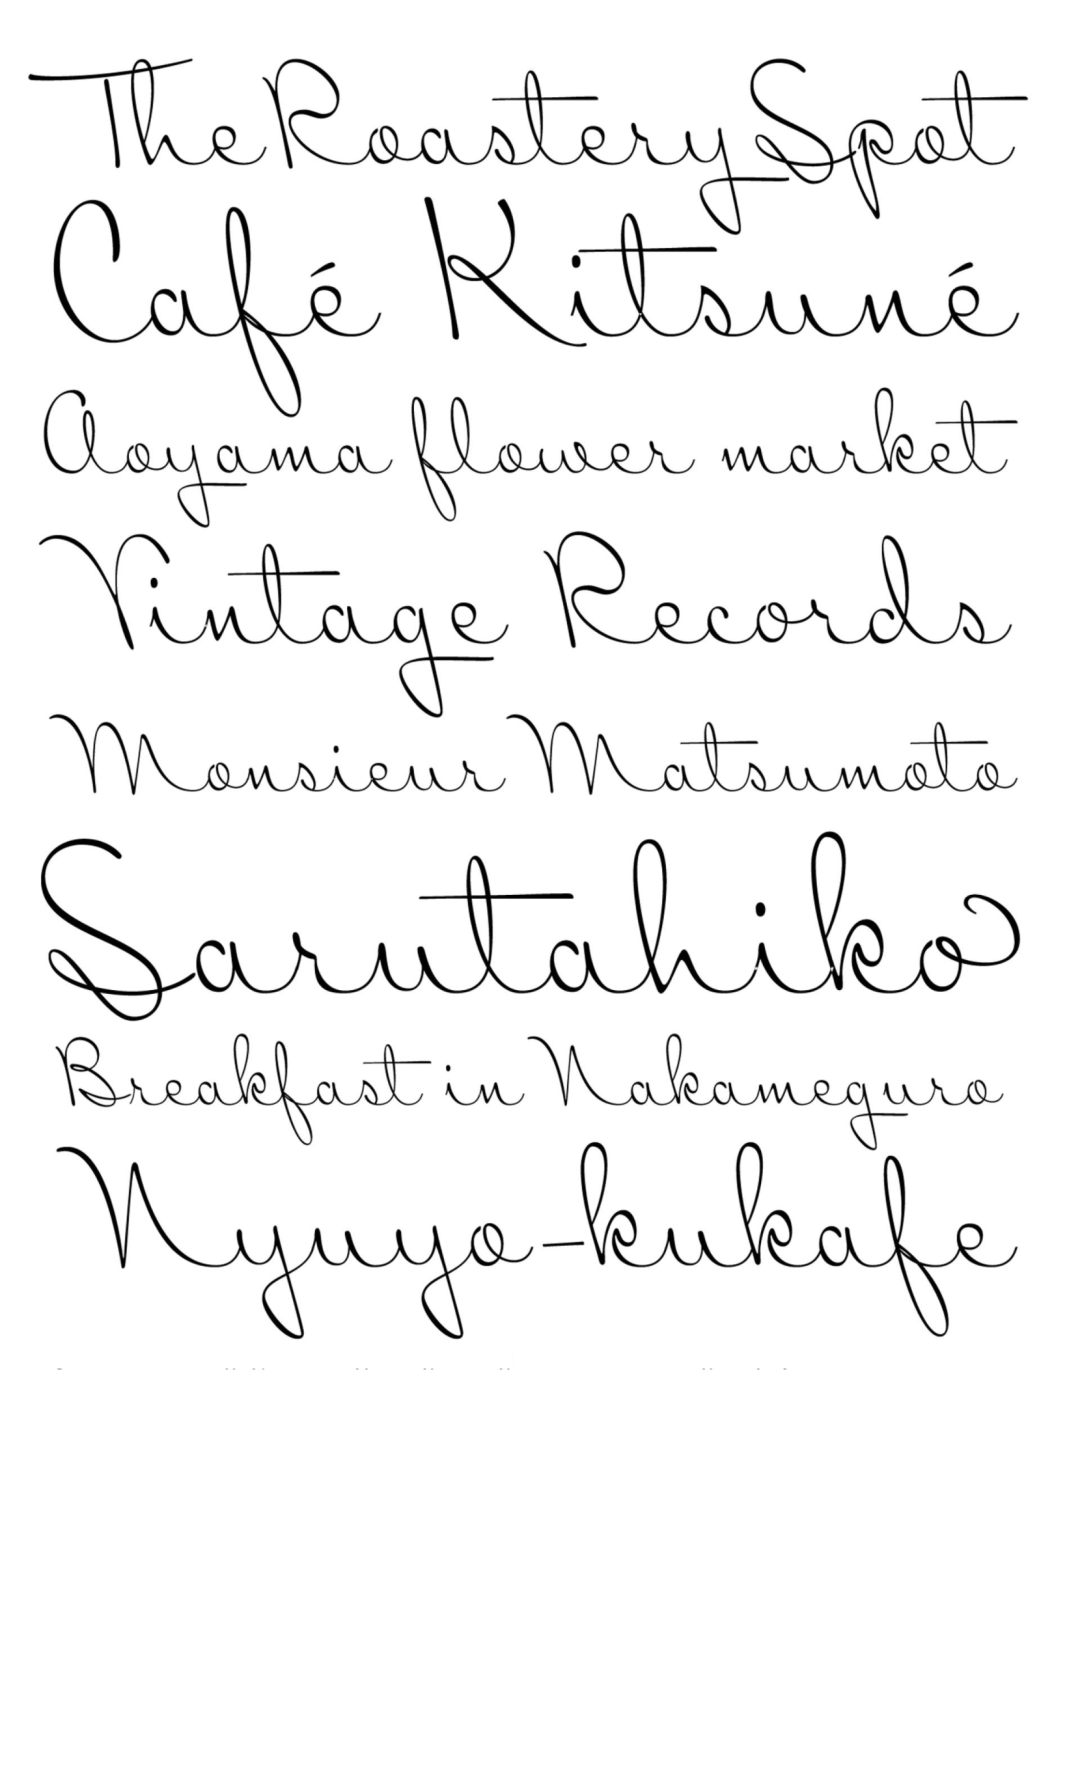 The Roastery Spot
Café Kitsuné
Aoyama flower market
Vintage Records
Monsieur Matsumoto
Sarutahiko
Breakfast in Nakameguro
Nyuyo-kukafe